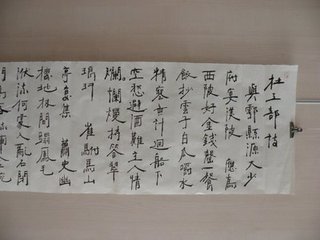 杜工部詩
與鄠縣源大少
府宴渼陂 應為
西陂好金錢罄餐
飯抄雲子白瓜嚼水
精寒無計迴船下
空愁避酒難主人情
爛爛熳持答翠
琅玕 崔駙馬山
亭宴集 蕭史幽
棲地林間踏鳳毛
洑流何處入亂石閉